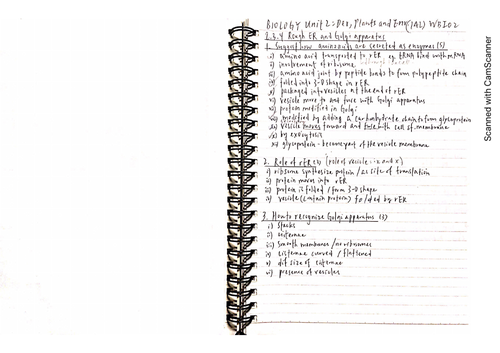 BIOLOGY Unit 2: Dev, Plants and Env (IAL) WBI02
2.3.4 Rough ER and Golgi apparatus
1. Suggest how amino acids are secreted as enzymes (5)
i) amino acid transported to rER eg tRNA bind with mRNA
ii) involvement of ribosome
iii) amino acid joint by peptide bonds to form polypeptide chain
iv) folded into 3-D shape in rER
v) packaged into vesicles at the end of rER
vi) vesicle move to and fuse with Golgi apparatus
vii) protein modified in Golgi
viii) modified by adding a carbohydrate chain to form glycoprotein
ix) vesicle moves toward and fuse with cell s. membrane
x) by exocytosis
xi) glycoprotein - become part of the vesicle membrane
2. Role of rER (3) (role of vesicle: ix and x)
i) ribosome synthesize protein / as site of translation
ii) protein moves into rER
iii) protein is folded / form 3-D shape
iv) vesicle (contain protein) folded by rER
3. How to recognise Golgi apparatus (3)
i) Stacks
ii) cisternae
iii) smooth membranes / no ribosomes
iv) cisternae curved / flattened
v) dif size of cisternae
vi) presence of vesicles
Scanned with CamScanner